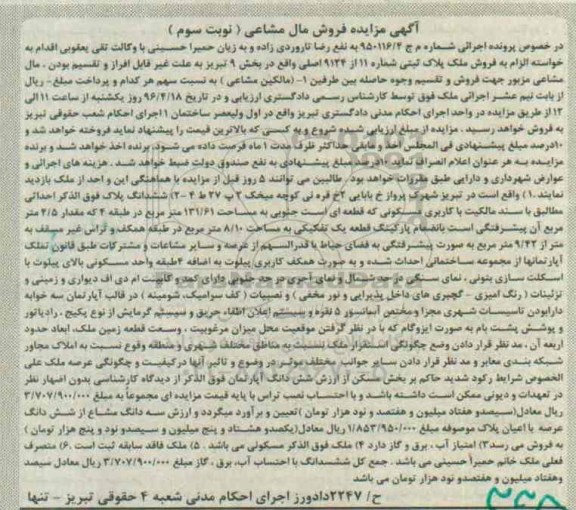 آگهی مزایده فروش مال مشاعی ( نوبت سوم )
در خصوص پرونده اجرائی شماره م ج ۹۵۰۱۱۶/۴ به نفع رضا تاروردی زاده و به زیان حمیرا حسینی با وکالت تقی یعقوبی اقدام به
خواسته الزام به فروش ملک پلاک ثبتی شماره ۱۱ از ۹۱۲۴ اصلی واقع در بخش ۹ تبریز به علت غیر قابل افراز و تقسیم بودن ، مال
مشاعی مزبور جهت فروش و تقسیم وجوه حاصله بین طرفین ۱- (مالکین مشاعی ) به نسبت سهم هر کدام و پرداخت مبلغ- ریال
از بابت نیم عشر اجرائی ملک فوق توسط کارشناس رسمی دادگستری ارزیابی و در تاریخ ۹۶/۴/۱۸ روز یکشنبه از ساعت ۱۱ الی
۱۲ از طریق مزایده در واحد اجرای احکام مدنی دادگستری تبریز واقع در اول ولیعصر ساختمان ۱ اجرای احکام شعب حقوقی تبریز
به فروش خواهد رسید . مزایده از مبلغ ارزیابی شده شروع و به کسی که بالاترین قیمت را پیشنهاد نماید فروخته خواهد شد و
۱۰درصد مبلغ پیشنهادی فی المجلس اخذ و مابقی حداکثر ظرف مدت ۱ ماه فرصت داده می شود. برنده اخذ خواهد شد و برنده
مزایده به هر عنوان اعلام انصراف نماید ۱۰درصد مبلغ پیشنهادی به نفع صندوق دولت ضبط خواهد شد . هزینه های اجرائی و
عوارض شهرداری و دارایی طبق مقررات خواهد بود. طالبین می توانند ۵ روز قبل از مزایده با هماهنگی این و احد از ملک بازدید
نمایند .۱) واقع است در تبریز شهرک پرواز خ بابایی ۲خ قره نی کوچه میخک ۲پ ۲۷ ط ۴ -۲) ششدانگ پلاک فوق الذکر احداثی
مطالبق با سند مالکیت با کاربری مسکونی که قطعه ای است جنوبی به مساحت ۱۳۱/۶۱ متر مربع در طبقه ۴ که مقدار ۲/۵ متر
مربع آن پیشرفتگی است بانضمام پارکینگ قطعه یک تفکیکی به مساحت ۸/۱۰ متر مربع در طبقه همکف و تراس غیر مسقف به
متر از ۹/۴۲ متر مربع به صورت پیشرفتگی به فضای حیاط با قدرالسهم از عرصه و سایر مشاعات و مشترکات طبق قانون تملک
آپارتمانها از مجموعه ساختمانی احداث شده و به صورت همکف کاربری پیلوت به اضافه ۴طبقه واحد مسکونی بالای پیلوت با
اسکلت سازی بتونی ، نمای سنگی در حد شمال و نمای آجری در حد جنوبی دارای کمد و کابینت ام دی اف دیواری و زمینی و
تزئینات ( رنگ آمیزی - گچبری های داخل پذیرایی و نور مخفی ) و نصبیات ( کف سرامیک، شومینه ) در قالب آپارتمان سه خوابه
دارابودن تاسیسات شهری مجزا ومختص آسانسور ۵ نفره و سیستم اعلان اطفاء حریق و سیستم گرمایش از نوع پکیج ، رادیاتور
و پوشش پشت بام به صورت ایزوگام که با در نظر گرفتن موقعیت محل میزان مرغوبیت ، وسعت قطعه زمین ملک، ابعاد حدود
اربعه آن ، مد نظر قرار دادن وضع چگونگی استقرار ملک نسبت به مناطق مختلف شهری و منطقه وقوع نسبت به املاک مجاور
شبکه بندی معابر و مد نظر قرار دادن سایر جوانب مختلف موثر در موضوع و تاثیر آنها درکیفیت و چگونگی عرصه ملک علی
الخصوص شرایط رکود شدید حاکم بر بخش مسکن از ارزش شش دانگ آپارتمان فوق الذکر از دیدگاه کارشناسی بدون اضهار نظر
در تعهدات و دیونی ممکن است داشته باشد و با احتساب نصب تراس با پایه قیمت مزایده ای مجموعاً به مبلغ ۳/۷۰۷/۹۰۰/۰۰۰
ریال معادل(سیصدو هفتاد میلیون و هفتصد و نود هزار تومان )تعیین و برآورد میگردد و ارزش سه دانگ مشاع از شش دانگ
عرصه با اعیان پلاک موصوفه مبلغ ۱/۸۵۳/۹۵۰/۰۰۰ ریال معادل(یکصدو هشتاد و پنج میلیون و سیصدو نود و پنج هزار تومان )
به فروش می رسد۳) امتیاز آب ، برق و گاز دارد ۴) ملک فوق الذکر مسکونی می باشد . ۵) ملک فاقد سابقه ثبت است .۶) متصرف
فعلی ملک خانم حمیرا حسینی می باشد . جمع کل ششسدانگ با احتساب آب، برق ، گاز مبلغ ۳/۷۰۷/۹۰۰/۰۰۰ ریال معادل سیصد
وهفتاد میلیون و هفتصدو نود هزار تومان می باشد
ح/ ۲۲۴۷دادورز اجرای احکام مدنی شعبه ۴ حقوقی تبریز - تنها